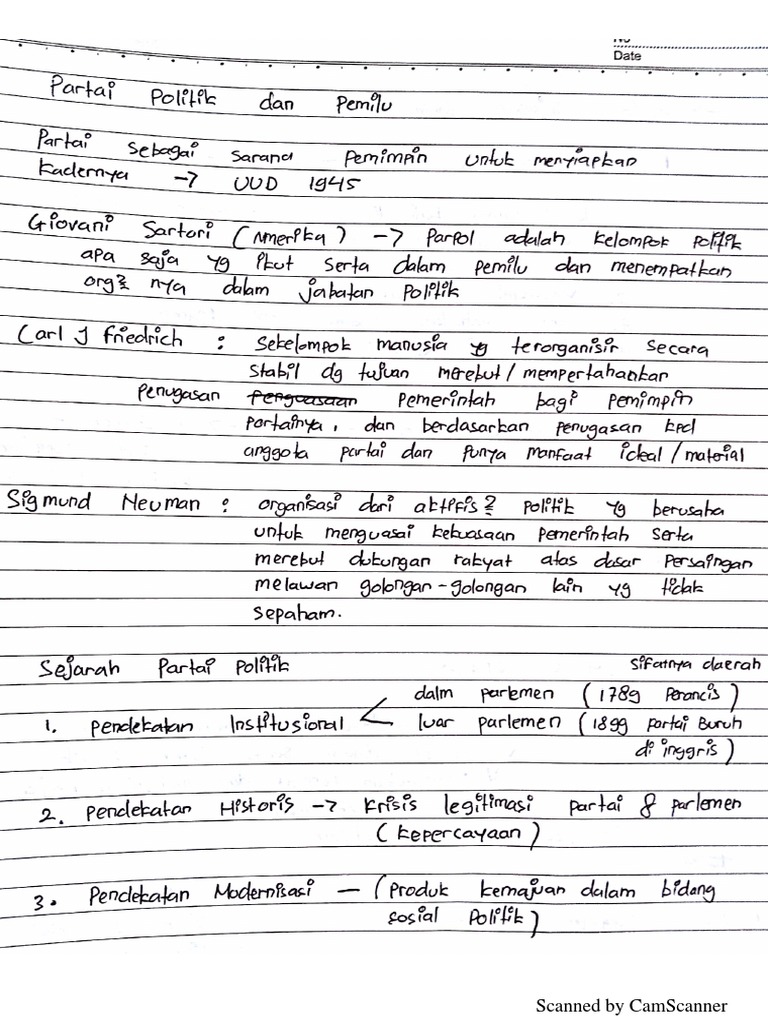 No
Date
Partai Politik dan Pemilu
Partai sebagai sarana pemimpin untuk menyiapkan
kadernya -> UUD 1945
Giovani Sartori (Amerika) -> Parpol adalah kelompok politik
apa saja yg ikut serta dalam pemilu dan menempatkan
org2 nya dalam jabatan politik
Carl J Friedrich : Sekelompok manusia yg terorganisir secara
stabil dg tujuan merebut / mempertahankan
penugasan penguasaan pemerintah bagi pemimpin
partainya, dan berdasarkan penugasan kpd
anggota partai dan punya manfaat ideal / material
Sigmund Neuman : organisasi dari aktifis2 politik yg berusaha
untuk menguasai kekuasaan pemerintah serta
merebut dukungan rakyat atas dasar persaingan
melawan golongan-golongan lain yg tidak
sepaham.
Sejarah Partai Politik
sifatnya daerah
1. Pendekatan Institusional < dalm parlemen (1789 Perancis)
luar parlemen (1899 partai Buruh
di inggris)
2. Pendekatan Historis -> krisis legitimasi partai & parlemen
(kepercayaan)
3. Pendekatan Modernisasi — (produk kemajuan dalam bidang
sosial Politik)
Scanned by CamScanner